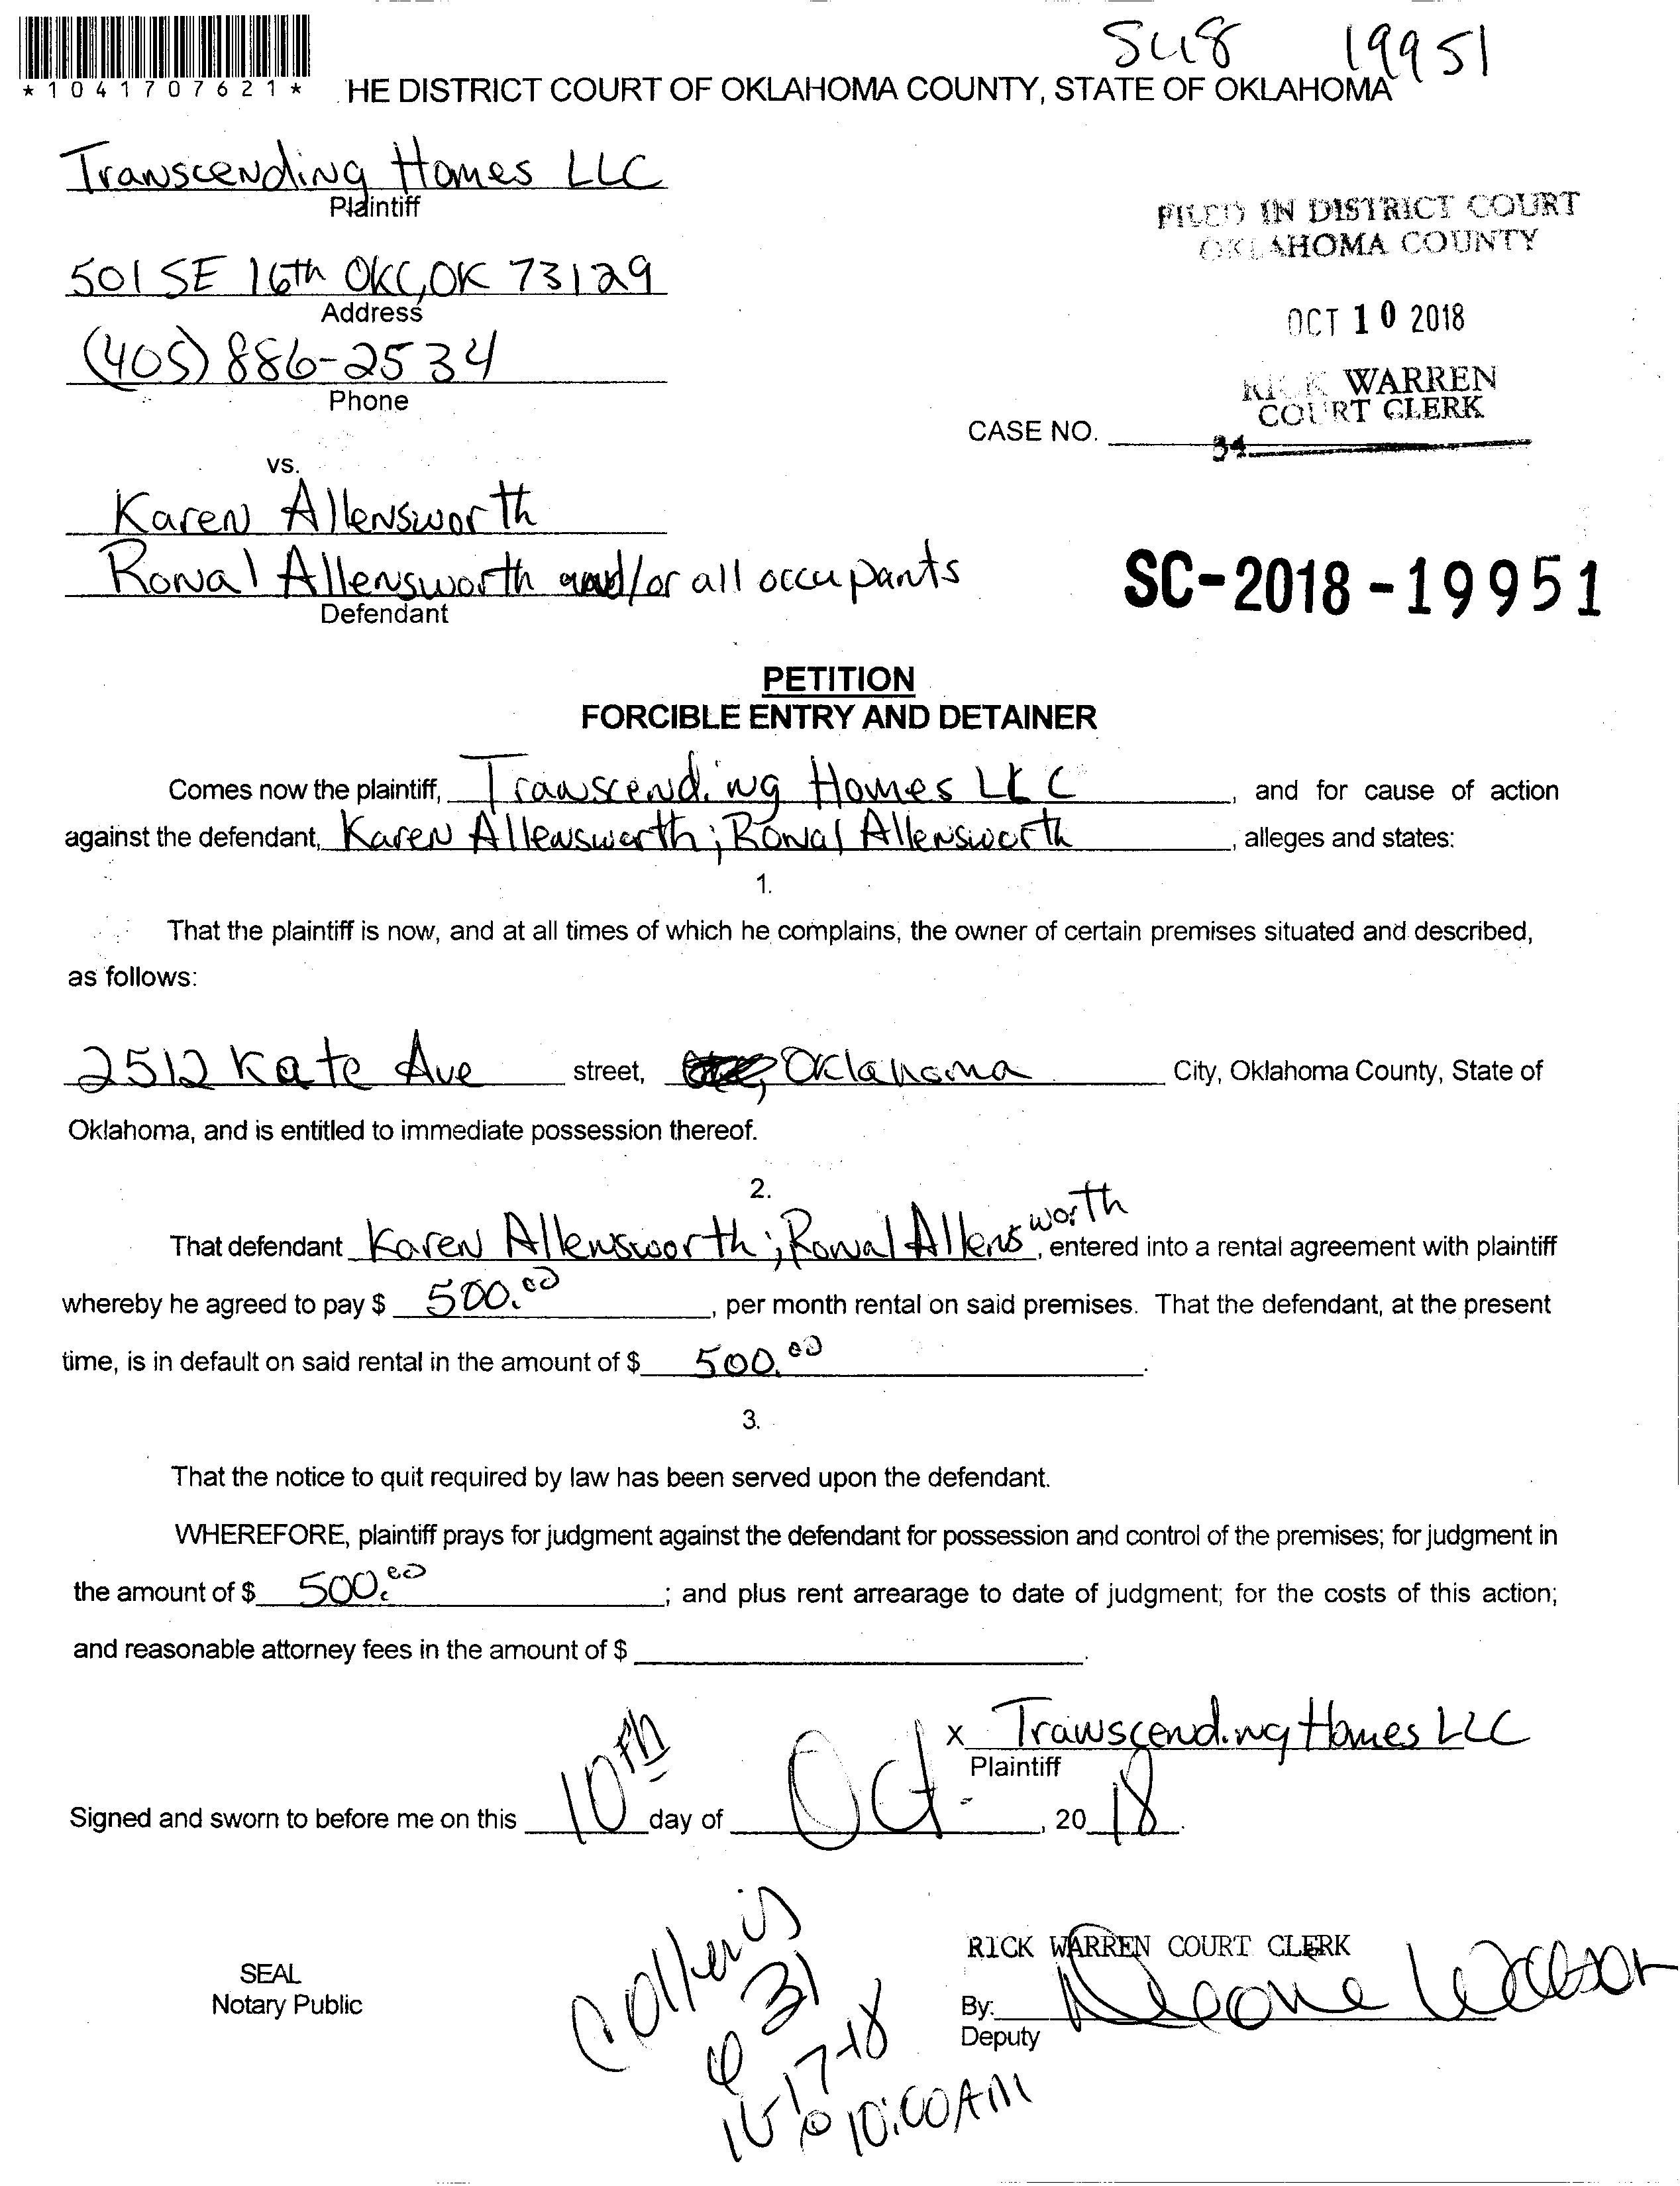 SC18 19951
*1041707621*
HE DISTRICT COURT OF OKLAHOMA COUNTY, STATE OF OKLAHOMA
Transcending Homes LLC
Plaintiff
FILED IN DISTRICT COURT
OKLAHOMA COUNTY
501 SE 16th OKC, OK 73129
Address
OCT 10 2018
(405) 886-2534
Phone
RICK WARREN
COURT CLERK
CASE NO.
34
vs.
Karen Allensworth
Ronal Allensworth and/or all occupants
Defendant
SC-2018-19951
PETITION
FORCIBLE ENTRY AND DETAINER
Comes now the plaintiff, Transcending Homes LLC, and for cause of action
against the defendant, Karen Allensworth; Ronal Allensworth, alleges and states:
1.
That the plaintiff is now, and at all times of which he complains, the owner of certain premises situated and described,
as follows:
2512 Kate Ave street, Oklahoma City, Oklahoma County, State of
Oklahoma, and is entitled to immediate possession thereof.
2.
That defendant Karen Allensworth; Ronal Allensworth, entered into a rental agreement with plaintiff
whereby he agreed to pay $ 500.00, per month rental on said premises. That the defendant, at the present
time, is in default on said rental in the amount of $ 500.00.
3.
That the notice to quit required by law has been served upon the defendant.
WHEREFORE, plaintiff prays for judgment against the defendant for possession and control of the premises; for judgment in
the amount of $ 500.00; and plus rent arrearage to date of judgment; for the costs of this action;
and reasonable attorney fees in the amount of $ .
x Transcending Homes LLC
Plaintiff
Signed and sworn to before me on this 10th day of Oct, 2018.
RICK WARREN COURT CLERK
SEAL
Notary Public
By:
Deputy
31
10-17-18
@ 10:00AM